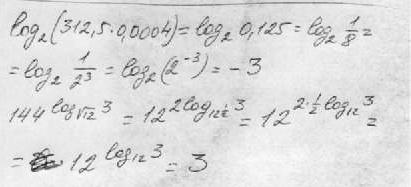 log₂(312,5·0,0004) = log₂ 0,125 = log₂ 1/8 =
= log₂ 1/2³ = log₂(2⁻³) = -3
144^(log_√12 3) = 12^(2log_(12^(1/2)) 3) = 12^(2·1/2 log₁₂ 3) =
= 12^(log₁₂ 3) = 3